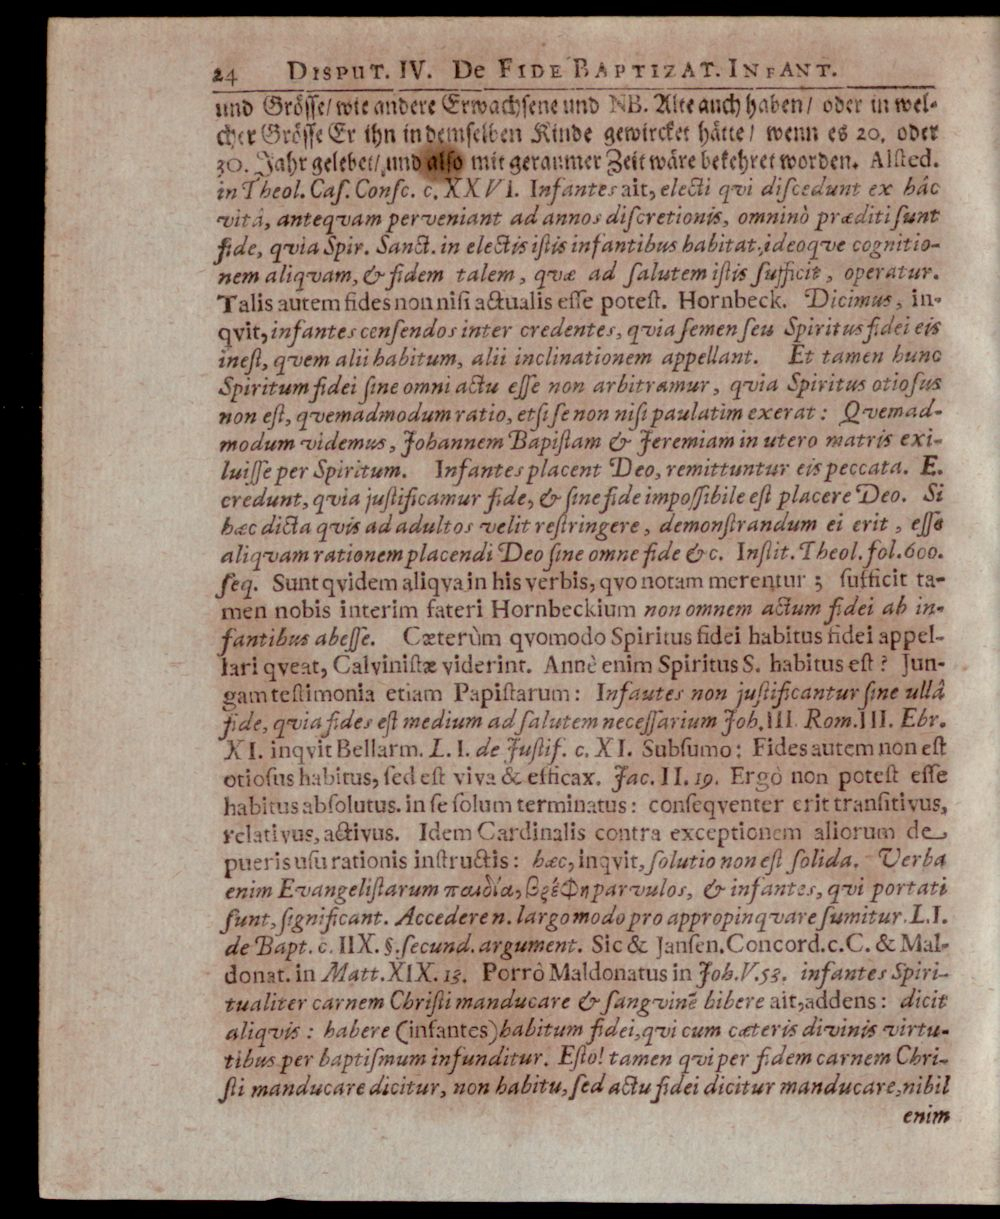 24 DISPUT. IV. DE FIDE BAPTIZAT. INFANT.
und Grösse/ wie andere Erwachsene und NB. Alte auch haben/ oder in wel-
cher Grösse Er ihn in demselben Kinde gewircket hätte/ wenn es 20. oder
30. Jahr gelebet/ und also mit geraumer Zeit wäre bekehret worden. Alsted.
in Theol. Cas. Consc. c. XXVI. Infantes ait, electi qvi discedunt ex hâc
vitâ, anteqvam perveniant ad annos discretionis, omninò præditi sunt
fide, qvia Spir. Sanct. in electis istis infantibus habitat, ideoqve cognitio-
nem aliqvam, & fidem talem, qvæ ad salutem istis sufficit, operatur.
Talis autem fides non nisi actualis esse potest. Hornbeck. Dicimus, in-
qvit, infantes censendos inter credentes, qvia semen seu Spiritus fidei eis
inest, qvem alii habitum, alii inclinationem appellant. Et tamen hunc
Spiritum fidei sine omni actu esse non arbitramur, qvia Spiritus otiosus
non est, qvemadmodum ratio, etsi se non nisi paulatim exerat: Qvemad-
modum videmus, Johannem Bapistam & Jeremiam in utero matris exi-
luisse per Spiritum. Infantes placent Deo, remittuntur eis peccata. E.
credunt, qvia justificamur fide, & sine fide impossibile est placere Deo. Si
hæc dicta qvis ad adultos velit restringere, demonstrandum ei erit, esse
aliqvam rationem placendi Deo sine omne fide &c. Instit. Theol. fol. 600.
seq. Sunt qvidem aliqva in his verbis, qvo notam merentur; sufficit ta-
men nobis interim fateri Hornbeckium non omnem actum fidei ab in-
fantibus abesse. Cæterùm qvomodo Spiritus fidei habitus fidei appel-
lari qveat, Calvinistæ viderint. Annè enim Spiritus S. habitus est? Jun-
gam testimonia etiam Papistarum: Infautes non justificantur sine ullâ
fide, qvia fides est medium ad salutem necessarium Joh. III. Rom. III. Ebr.
XI. inqvit Bellarm. L. I. de Justif. c. XI. Subsumo: Fides autem non est
otiosus habitus, sed est viva & efficax. Jac. II. 19. Ergò non potest esse
habitus absolutus. in se solum terminatus: conseqventer erit transitivus,
relativus, activus. Idem Cardinalis contra exceptionem aliorum de
pueris usu rationis instructis: hæc, inqvit, solutio non est solida. Verba
enim Evangelistarum παιδία, βρέφη parvulos, & infantes, qvi portati
sunt, significant. Accedere n. largo modo pro appropinqvare sumitur. L. I.
de Bapt. c. IIX. §. secund. argument. Sic & Jansen. Concord. c. C. & Mal-
donat. in Matt. XIX. 13. Porrò Maldonatus in Joh. V. 53. infantes Spiri-
tualiter carnem Christi manducare & sangvinẽ bibere ait, addens: dicit
aliqvis: habere (infantes) habitum fidei, qvi cum cæteris divinis virtu-
tibus per baptismum infunditur. Esto! tamen qvi per fidem carnem Chri-
sti manducare dicitur, non habitu, sed actu fidei dicitur manducare, nihil
enim